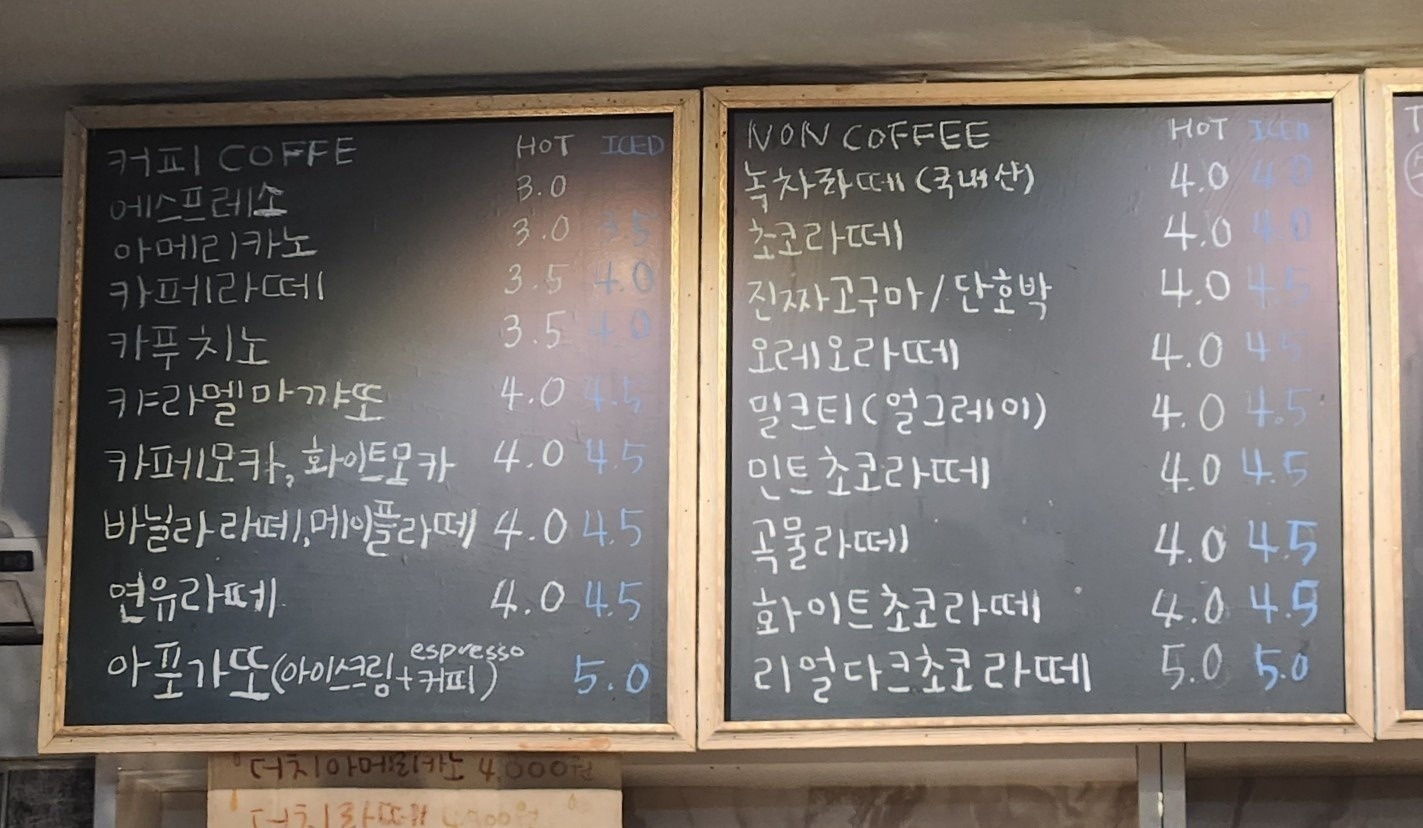 커피 COFFE HOT ICED
에스프레소 3.0
아메리카노 3.0 3.5
카페라떼 3.5 4.0
카푸치노 3.5 4.0
캬라멜마꺄또 4.0 4.5
카페모카, 화이트모카 4.0 4.5
바닐라라떼,메이플라떼 4.0 4.5
연유라떼 4.0 4.5
espresso
아포가또(아이스크림+커피) 5.0
NON COFFEE HOT ICED
녹차라떼(국내산) 4.0 4.0
초코라떼 4.0 4.0
진짜고구마/단호박 4.0 4.5
오레오라떼 4.0 4.5
밀크티(얼그레이) 4.0 4.5
민트초코라떼 4.0 4.5
곡물라떼 4.0 4.5
화이트초코라떼 4.0 4.5
리얼다크초코라떼 5.0 5.0
더치아메리카노 4,000원
더치라떼